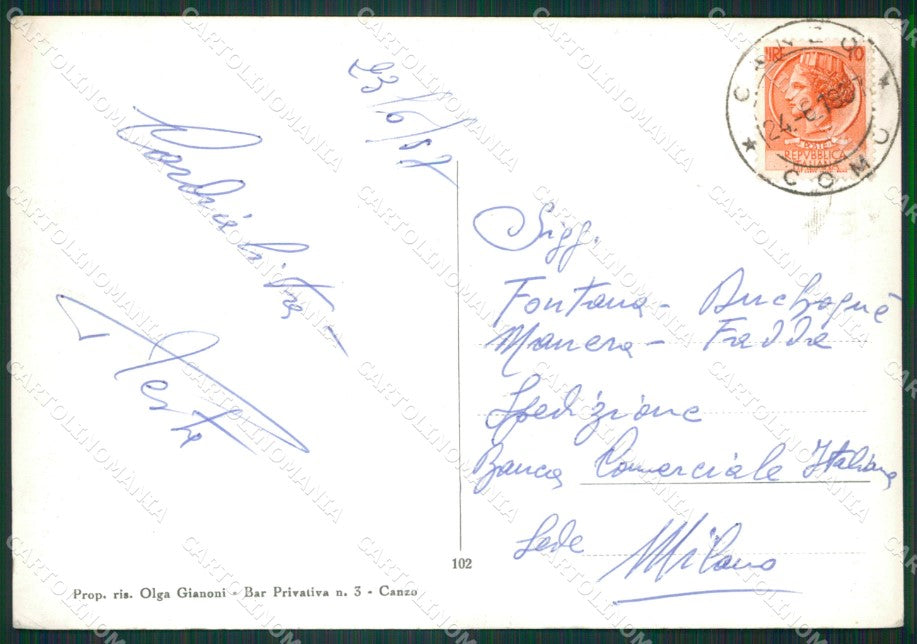 23/6/57
Cordialità -
Testa
CANZO
24.-6.1957
COMO
LIRE 10
POSTE
REPVBBLICA
ITALIANA
Sigg.
Fontana -
Manera - Fadda
Spedizione
Banca Commerciale Italiana
Sede Milano
102
Prop. ris. Olga Gianoni - Bar Privativa n. 3 - Canzo
CARTOLINOMANIA